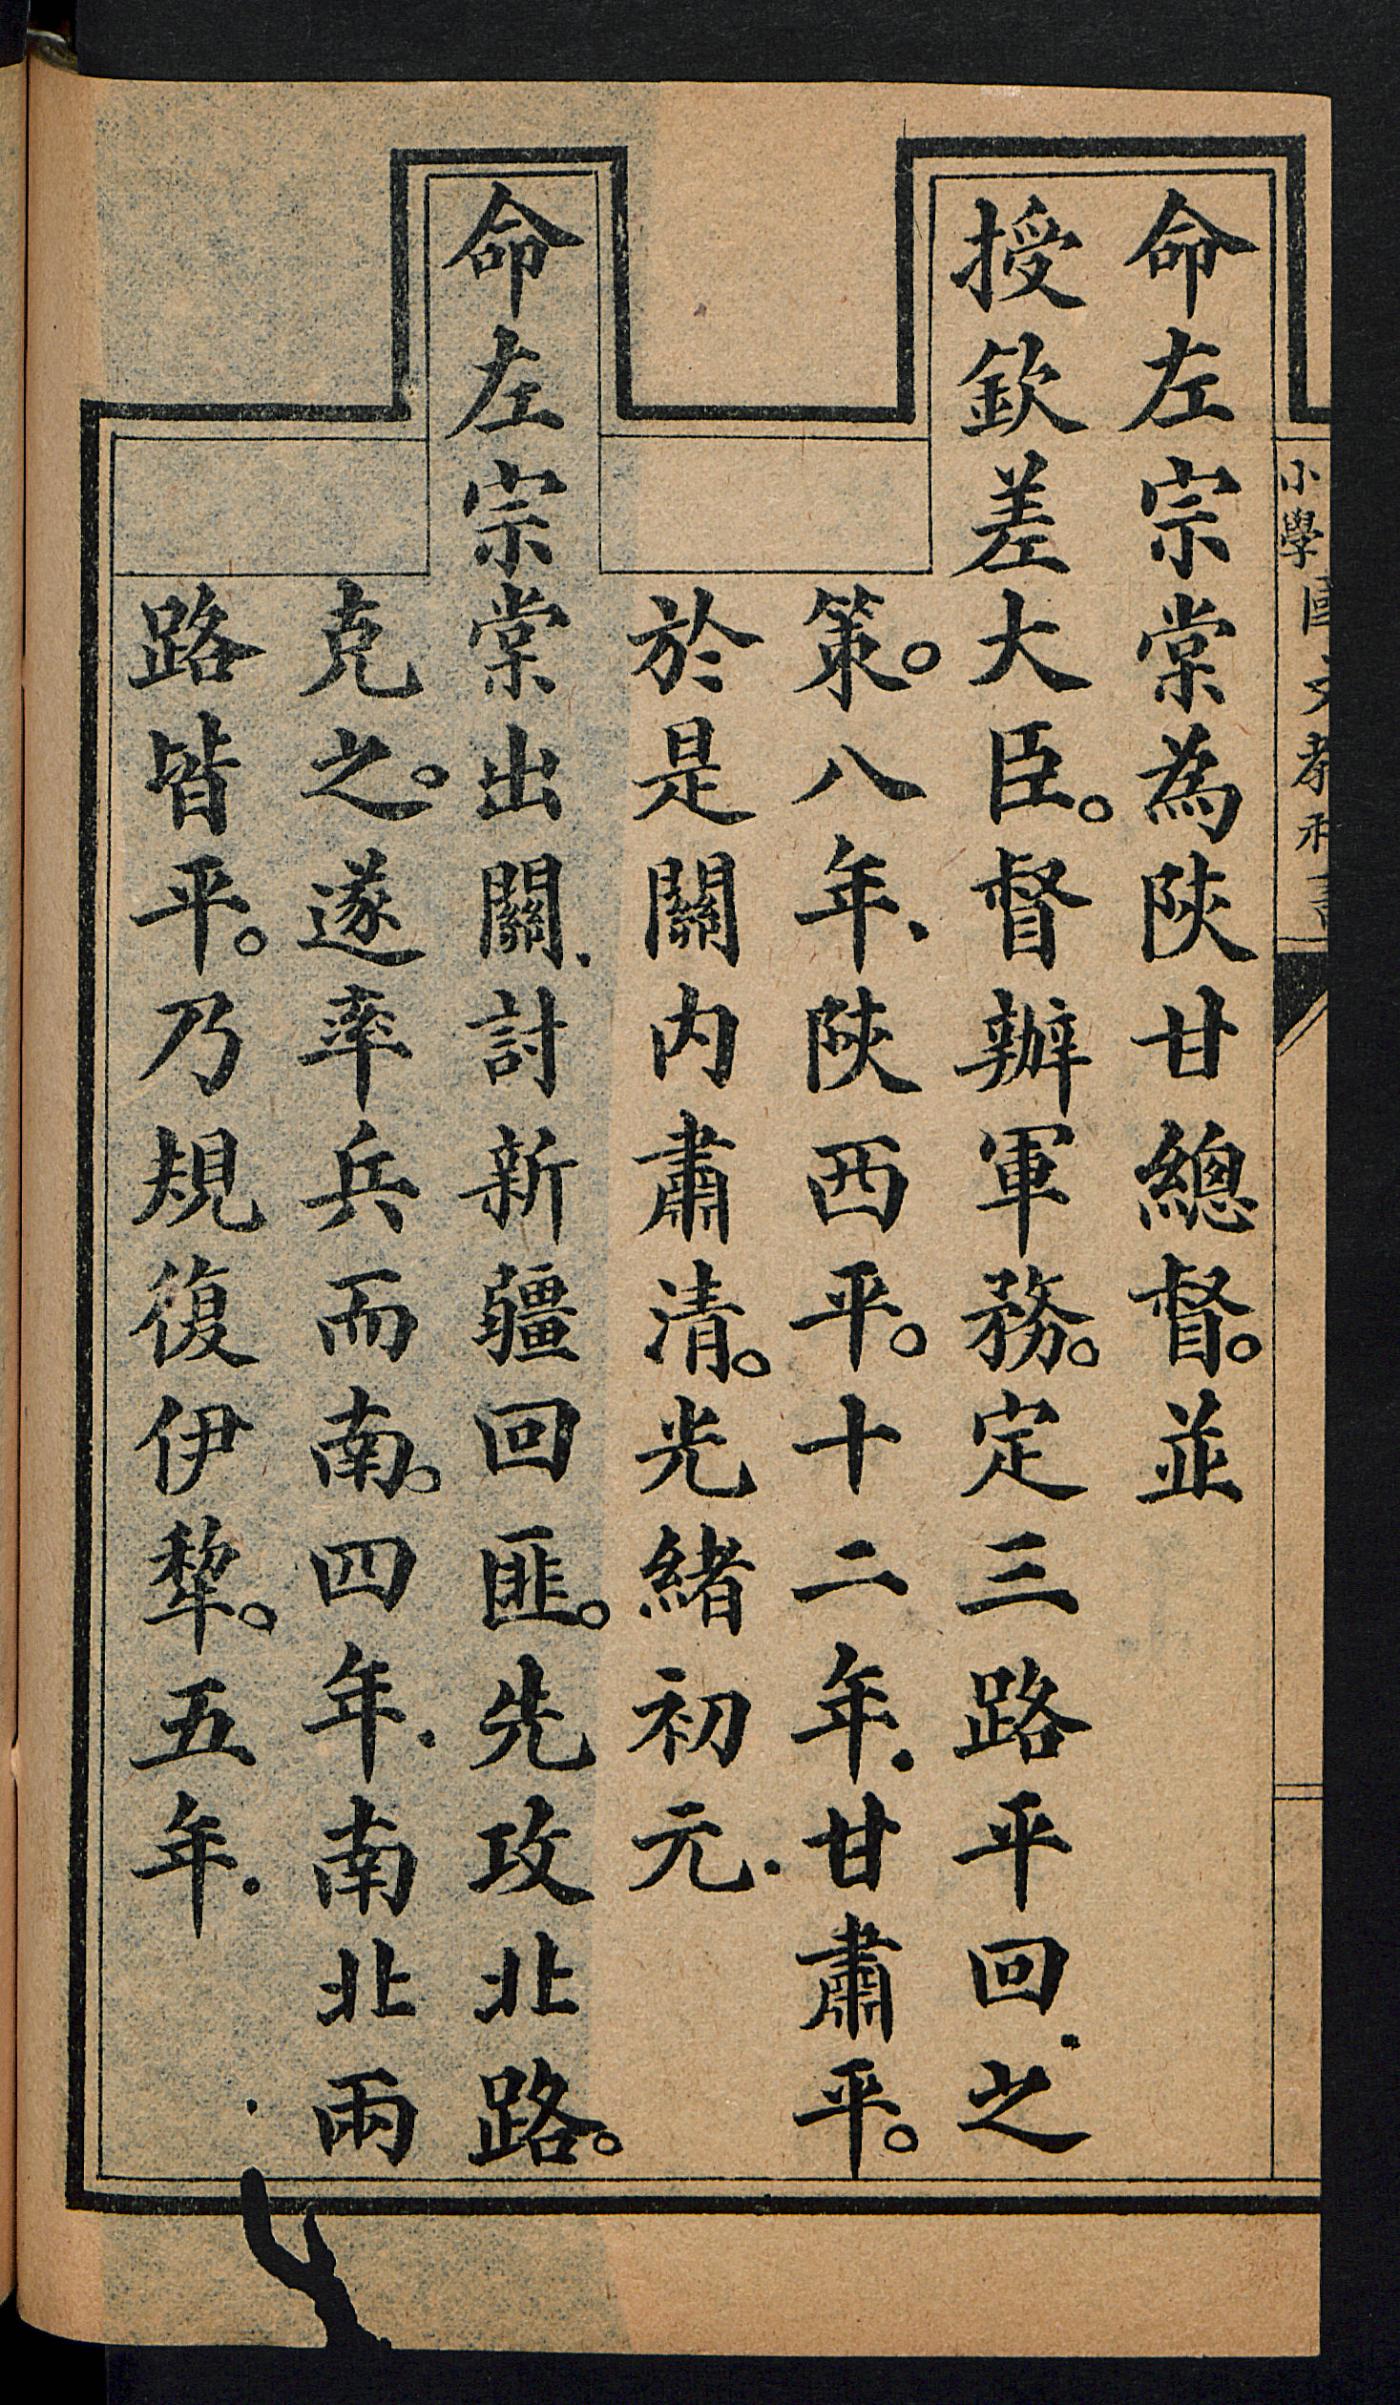 小學國文教科書
命左宗棠為陝甘總督。並
授欽差大臣。督辦軍務。定三路平回之
策。八年、陝西平。十二年、甘肅平。
於是關內肅清。光緒初元、
命左宗棠出關、討新疆回匪。先攻北路。
克之。遂率兵而南。四年、南北兩
路皆平。乃規復伊犂。五年、